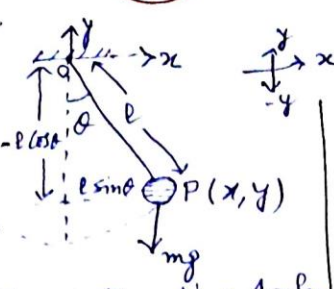 y
x
y
x
-y
a
-lcosθ
θ
l
l sinθ
P(x, y)
mg